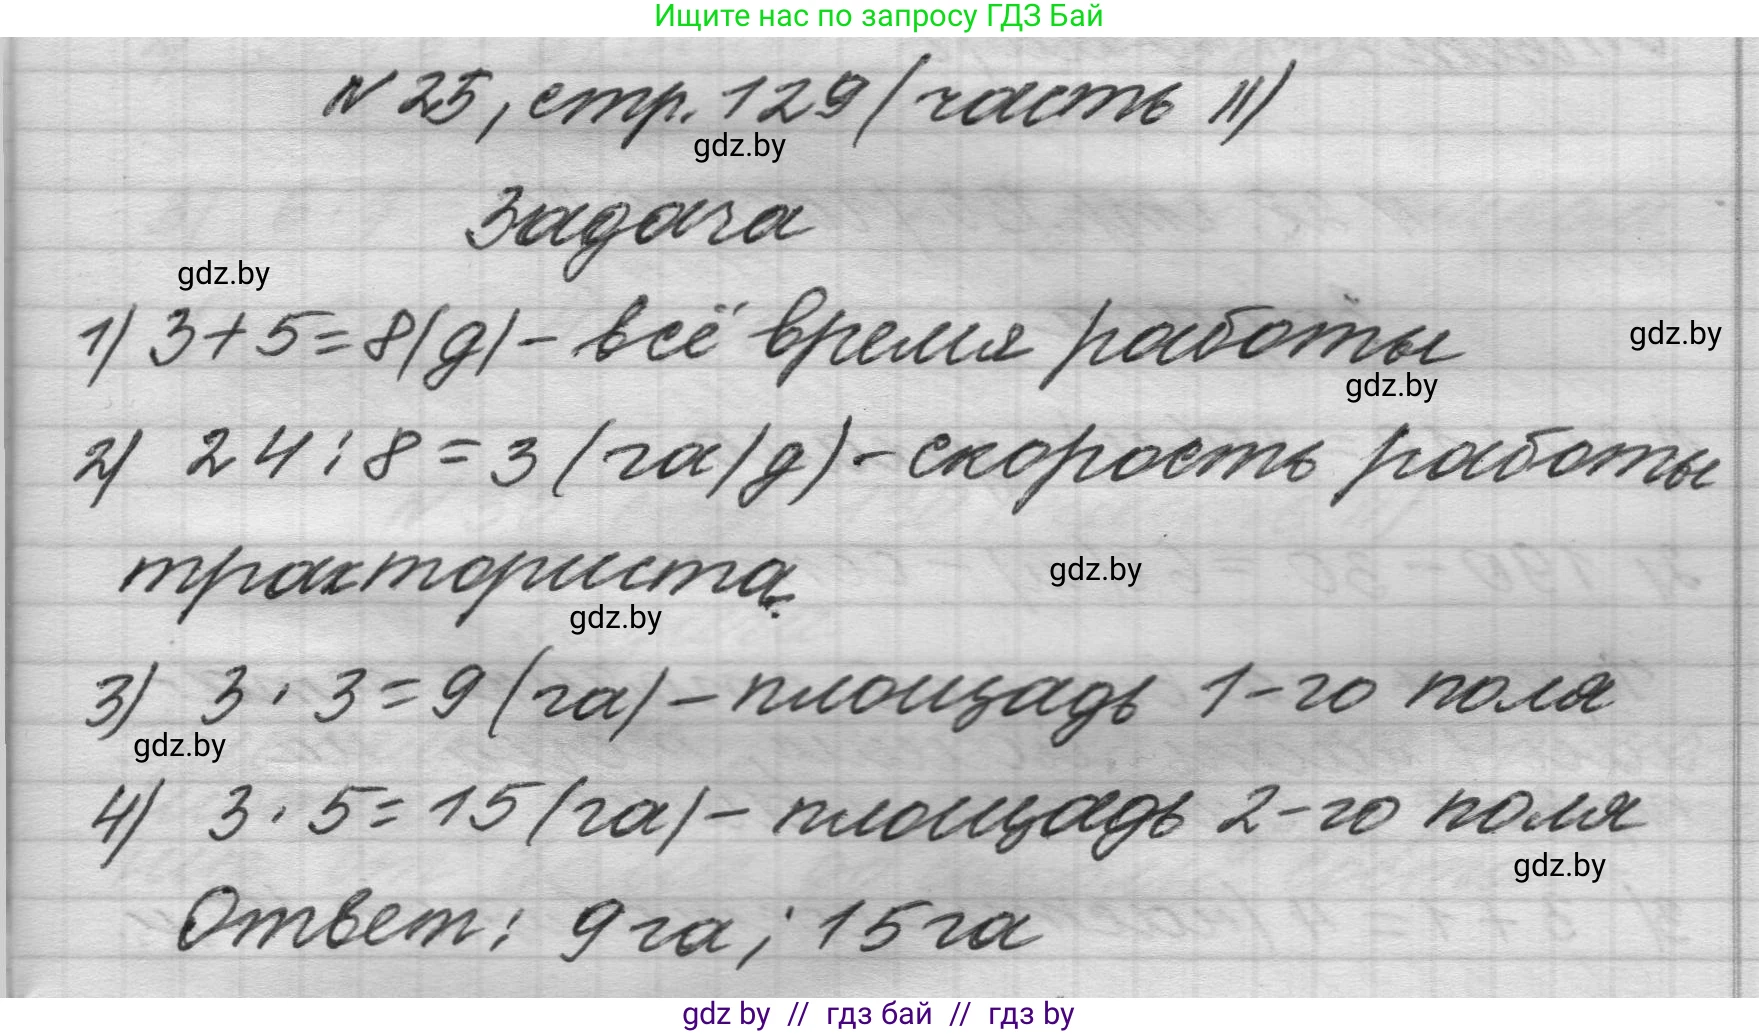 Ищите нас по запросу ГДЗ Бай
№ 25, стр. 129 (часть II)
gdz.by
Задача
gdz.by
1) 3 + 5 = 8 (д) - всё время работы
gdz.by
gdz.by
2) 24 : 8 = 3 (га/д) - скорость работы
тракториста.
gdz.by
gdz.by
3) 3 · 3 = 9 (га) - площадь 1-го поля
gdz.by
4) 3 · 5 = 15 (га) - площадь 2-го поля
gdz.by
Ответ: 9 га; 15 га
gdz by // гдз бай // гдз by